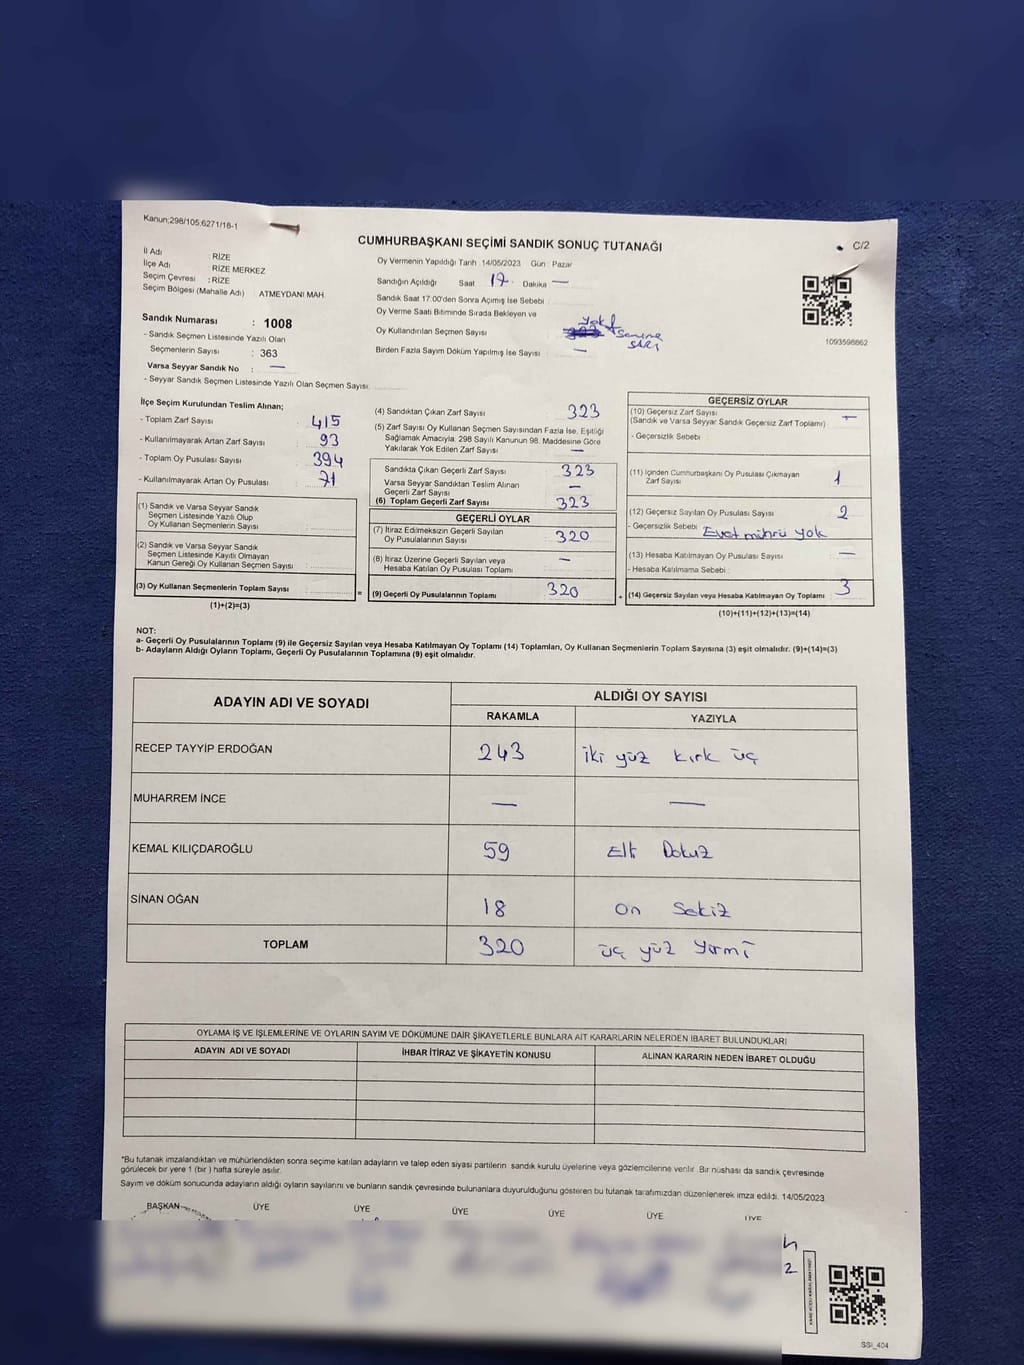 Kanun;298/105;6271/18-1
CUMHURBAŞKANI SEÇİMİ SANDIK SONUÇ TUTANAĞI
C/2
İl Adı : RİZE
İlçe Adı : RİZE MERKEZ
Seçim Çevresi : RİZE
Seçim Bölgesi (Mahalle Adı) : ATMEYDANI MAH.
Sandık Numarası : 1008
- Sandık Seçmen Listesinde Yazılı Olan
Seçmenlerin Sayısı : 363
Varsa Seyyar Sandık No : —
- Seyyar Sandık Seçmen Listesinde Yazılı Olan Seçmen Sayısı:
Oy Vermenin Yapıldığı Tarih :14/05/2023 Gün : Pazar
Sandığın Açıldığı Saat 17 Dakika —
Sandık Saat 17:00'den Sonra Açımış İse Sebebi :
Oy Verme Saati Bitiminde Sırada Bekleyen ve
Oy Kullandırılan Seçmen Sayısı : Yok
Birden Fazla Sayım Döküm Yapılmış İse Sayısı : —
1093598862
İlçe Seçim Kurulundan Teslim Alınan;
- Toplam Zarf Sayısı : 415
- Kullanılmayarak Artan Zarf Sayısı : 93
- Toplam Oy Pusulası Sayısı : 394
- Kullanılmayarak Artan Oy Pusulası : 71
(1) Sandık ve Varsa Seyyar Sandık
Seçmen Listesinde Yazılı Olup
Oy Kullanan Seçmenlerin Sayısı :
(2) Sandık ve Varsa Seyyar Sandık
Seçmen Listesinde Kayıtlı Olmayan
Kanun Gereği Oy Kullanan Seçmen Sayısı :
(3) Oy Kullanan Seçmenlerin Toplam Sayısı :
(1)+(2)=(3)
(4) Sandıktan Çıkan Zarf Sayısı : 323
(5) Zarf Sayısı Oy Kullanan Seçmen Sayısından Fazla İse, Eşitliği
Sağlamak Amacıyla, 298 Sayılı Kanunun 98. Maddesine Göre
Yakılarak Yok Edilen Zarf Sayısı : —
Sandıkta Çıkan Geçerli Zarf Sayısı : 323
Varsa Seyyar Sandıktan Teslim Alınan
Geçerli Zarf Sayısı : —
(6) Toplam Geçerli Zarf Sayısı : 323
GEÇERLİ OYLAR
(7) İtiraz Edilmeksizin Geçerli Sayılan
Oy Pusulalarının Sayısı : 320
(8) İtiraz Üzerine Geçerli Sayılan veya
Hesaba Katılan Oy Pusulası Toplamı : —
= (9) Geçerli Oy Pusulalarının Toplamı : 320
GEÇERSİZ OYLAR
(10) Geçersiz Zarf Sayısı : —
(Sandık ve Varsa Seyyar Sandık Geçersiz Zarf Toplamı)
- Geçersizlik Sebebi :
(11) İçinden Cumhurbaşkanı Oy Pusulası Çıkmayan
Zarf Sayısı : 1
(12) Geçersiz Sayılan Oy Pusulası Sayısı : 2
- Geçersizlik Sebebi : Evet mührü yok
(13) Hesaba Katılmayan Oy Pusulası Sayısı : —
- Hesaba Katılmama Sebebi :
+ (14) Geçersiz Sayılan veya Hesaba Katılmayan Oy Toplamı : 3
(10)+(11)+(12)+(13)=(14)
NOT:
a- Geçerli Oy Pusulalarının Toplamı (9) ile Geçersiz Sayılan veya Hesaba Katılmayan Oy Toplamı (14) Toplamları, Oy Kullanan Seçmenlerin Toplam Sayısına (3) eşit olmalıdır. (9)+(14)=(3)
b- Adayların Aldığı Oyların Toplamı, Geçerli Oy Pusulalarının Toplamına (9) eşit olmalıdır.
ADAYIN ADI VE SOYADI ALDIĞI OY SAYISI
RAKAMLA YAZIYLA
RECEP TAYYİP ERDOĞAN 243 iki yüz kırk üç
MUHARREM İNCE — —
KEMAL KILIÇDAROĞLU 59 Elli Dokuz
SİNAN OĞAN 18 on Sekiz
TOPLAM 320 üç yüz yirmi
OYLAMA İŞ VE İŞLEMLERİNE VE OYLARIN SAYIM VE DÖKÜMÜNE DAİR ŞİKAYETLERLE BUNLARA AİT KARARLARIN NELERDEN İBARET BULUNDUKLARI
ADAYIN ADI VE SOYADI İHBAR İTİRAZ VE ŞİKAYETİN KONUSU ALINAN KARARIN NEDEN İBARET OLDUĞU
*Bu tutanak imzalandıktan ve mühürlendikten sonra seçime katılan adayların ve talep eden siyasi partilerin sandık kurulu üyelerine veya gözlemcilerine verilir .Bir nüshası da sandık çevresinde
görülecek bir yere 1 (bir ) hafta süreyle asılır.
Sayım ve döküm sonucunda adayların aldığı oyların sayılarını ve bunların sandık çevresinde bulunanlara duyurulduğunu gösteren bu tutanak tarafımızdan düzenlenerek imza edildi. 14/05/2023
BAŞKAN ÜYE ÜYE ÜYE ÜYE ÜYE ÜYE
SSİ_404